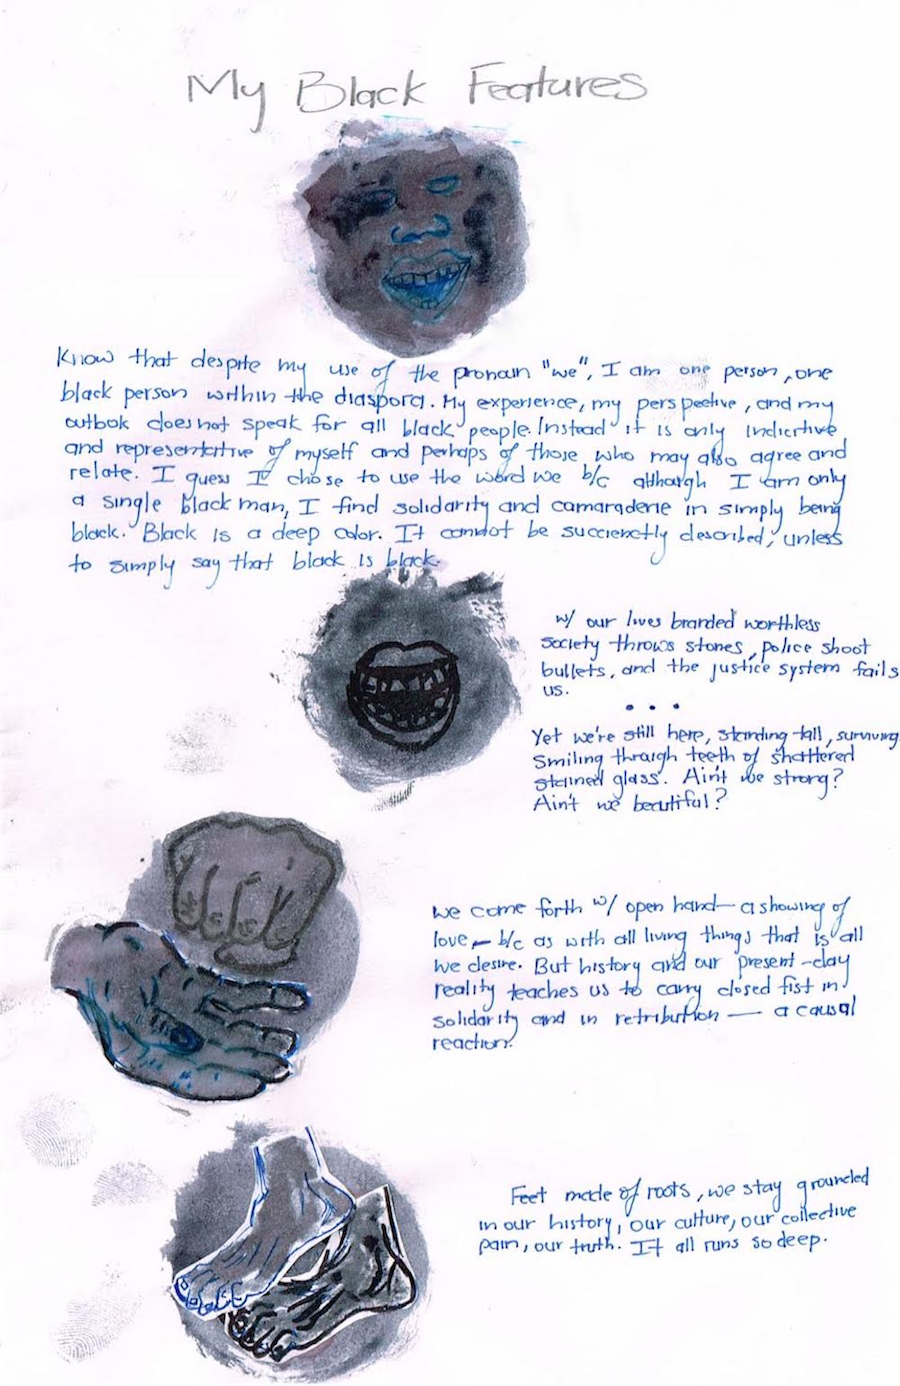 My Black Features
Know that despite my use of the pronoun "we", I am one person, one
black person within the diaspora. My experience, my perspective, and my
outlook does not speak for all black people. Instead it is only indictive
and representative of myself and perhaps of those who may also agree and
relate. I guess I chose to use the word we b/c although I am only
a single black man, I find solidarity and camaraderie in simply being
black. Black is a deep color. It cannot be succienctly described, unless
to simply say that black is black.
w/ our lives branded worthless
society throws stones, police shoot
bullets, and the justice system fails
us.
...
Yet we're still here, standing tall, surviving
Smiling through teeth of shattered
stained glass. Ain't we strong?
Ain't we beautiful?
We come forth w/ open hand — a showing of
love — b/c as with all living things that is all
we desire. But history and our present-day
reality teaches us to carry closed fist in
solidarity and in retribution — a causal
reaction.
Feet made of roots, we stay grounded
in our history, our culture, our collective
pain, our truth. It all runs so deep.